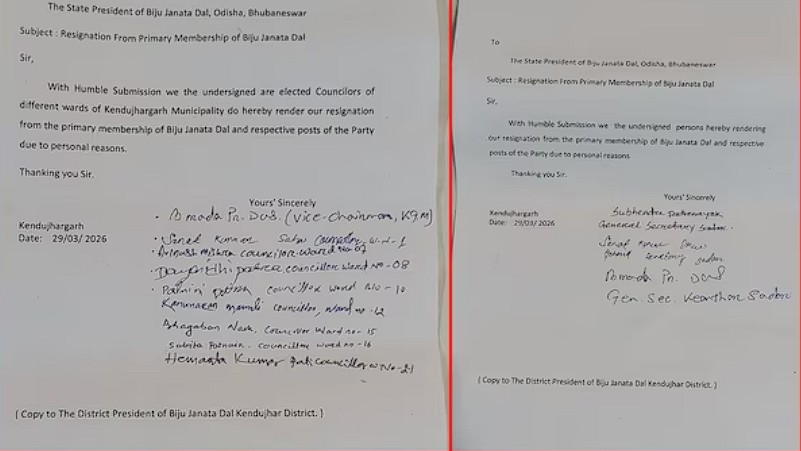 The State President of Biju Janata Dal, Odisha, Bhubaneswar
Subject : Resignation From Primary Membership of Biju Janata Dal
Sir,
With Humble Submission we the undersigned are elected Councilors of
different wards of Kendujhargarh Municipality do hereby render our resignation
from the primary membership of Biju Janata Dal and respective posts of the Party
due to personal reasons.
Thanking you Sir.
Yours' Sincerely
Pn. Das. (Vice-Chairman, KJM)
Kendujhargarh
Date: 29/03/2026
Kumar Sahu W.N-1
Mishra councillor ward
councillor ward No-08
councillor ward No-10
councillor, ward no-12
Bhagaban Naik, Ward no-15
councillor ward no-16
Hemanta Kumar councillor W.No-21
( Copy to The District President of Biju Janata Dal Kendujhar District. )
To
The State President of Biju Janata Dal, Odisha, Bhubaneswar
Subject : Resignation From Primary Membership of Biju Janata Dal
Sir,
With Humble Submission we the undersigned persons hereby rendering
our resignation from the primary membership of Biju Janata Dal and respective
posts of the Party due to personal reasons
Thanking you Sir.
Yours' Sincerely
Kendujhargarh
Date: 29/03/2026
Subhendra Pattanayak
General Secretary Sadar.
Secretary Sadar
Pn. Das
Gen. Sec. Keonjhar Sadar
( Copy to The District President of Biju Janata Dal Kendujhar District. )